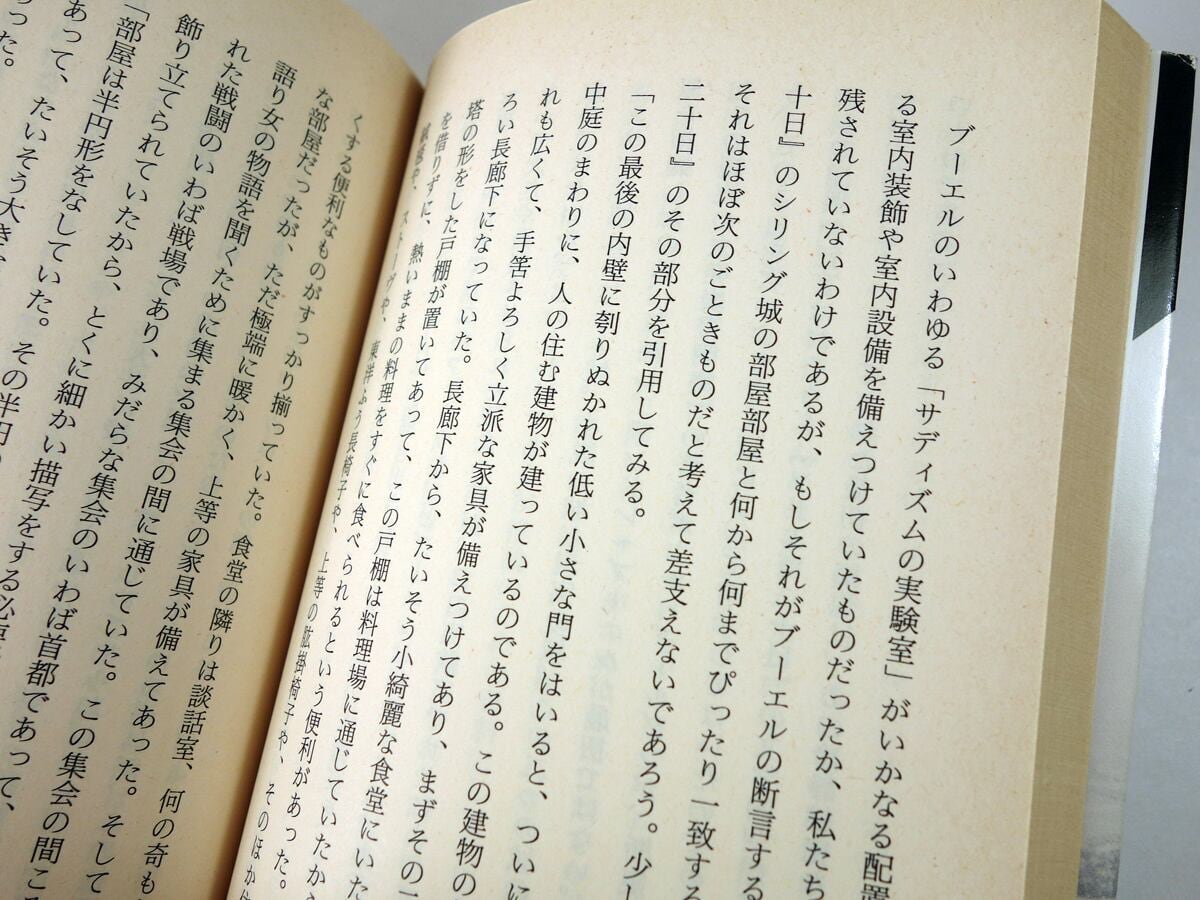 ブーエルのいわゆる「サディズムの実験室」がいかなる配置
る室内装飾や室内設備を備えつけていたものだったか、私たち
残されていないわけであるが、もしそれがブーエルの断言する
十日』のシリング城の部屋部屋と何から何までぴったり一致する
それはほぼ次のごときものだと考えて差支えないであろう。少し
二十日』のその部分を引用してみる。
「この最後の内壁に刳りぬかれた低い小さな門をはいると、ついに
中庭のまわりに、人の住む建物が建っているのである。この建物の
れも広くて、手筈よろしく立派な家具が備えつけてあり、まずその一
ろい長廊下になっていた。長廊下から、たいそう小綺麗な食堂にいた
塔の形をした戸棚が置いてあって、この戸棚は料理場に通じていたから
を借りずに、熱いままの料理をすぐに食べられるという便利があった。
や、ストーヴや、東洋ふう長椅子や、上等の肱掛椅子や、そのほか
くする便利なものがすっかり揃っていた。食堂の隣りは談話室、何の奇も
な部屋だったが、ただ極端に暖かく、上等の家具が備えてあった。そして
語り女の物語を聞くために集まる集会の間に通じていた。この集会の間こ
れた戦闘のいわば戦場であり、みだらな集会のいわば首都であって、
飾り立てられていたから、とくに細かい描写をする必要
「部屋は半円形をなしていた。その半円
あって、たいそう大き
った。